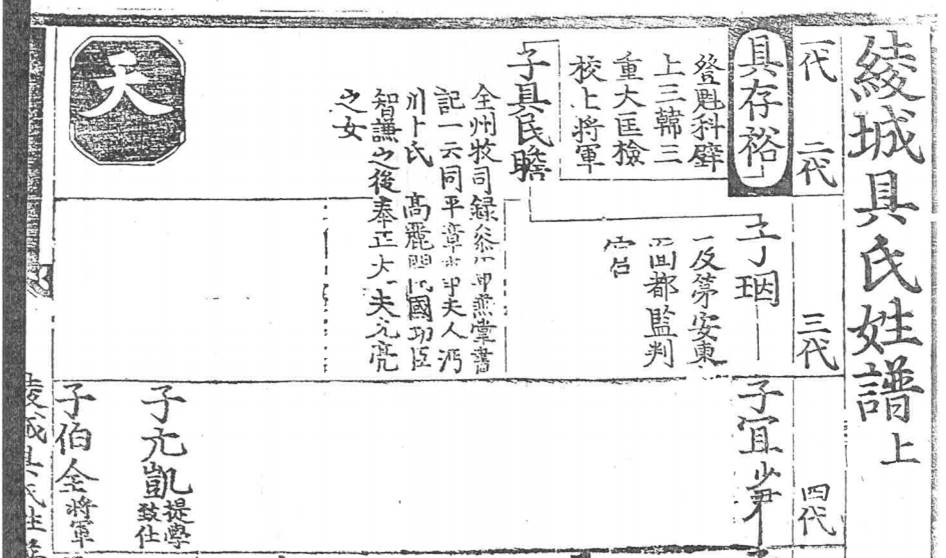 綾城具氏姓譜上
一代
二代
三代
四代
具存裕
登魁科壁
上三韓三
重大匡檢
校上將軍
子具民瞻
全州牧司錄
掌書
記一云同平章
夫人沔
川卜氏 高麗開國功臣
智謙之後奉正大夫元亮
之女
子珚
一及第安東
面都監判
官
子冝少尹
子亢凱提學
致仕
子伯全將軍
天
綾城具氏姓譜